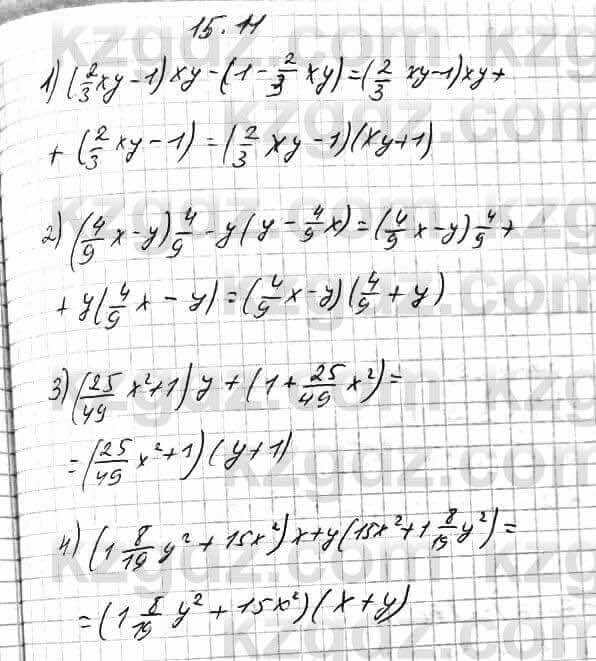 15.11
1) (2/3 xy - 1) xy - (1 - 2/3 xy) = (2/3 xy - 1) xy +
+ (2/3 xy - 1) = (2/3 xy - 1)(xy + 1)
2) (4/9 x - y) 4/9 - y (y - 4/9 x) = (4/9 x - y) 4/9 +
+ y (4/9 x - y) = (4/9 x - y)(4/9 + y)
3) (25/49 x² + 1) y + (1 + 25/49 x²) =
= (25/49 x² + 1)(y + 1)
4) (1 8/19 y² + 15x²) x + y (15x² + 1 8/19 y²) =
= (1 8/19 y² + 15x²)(x + y)
kzgdz.com